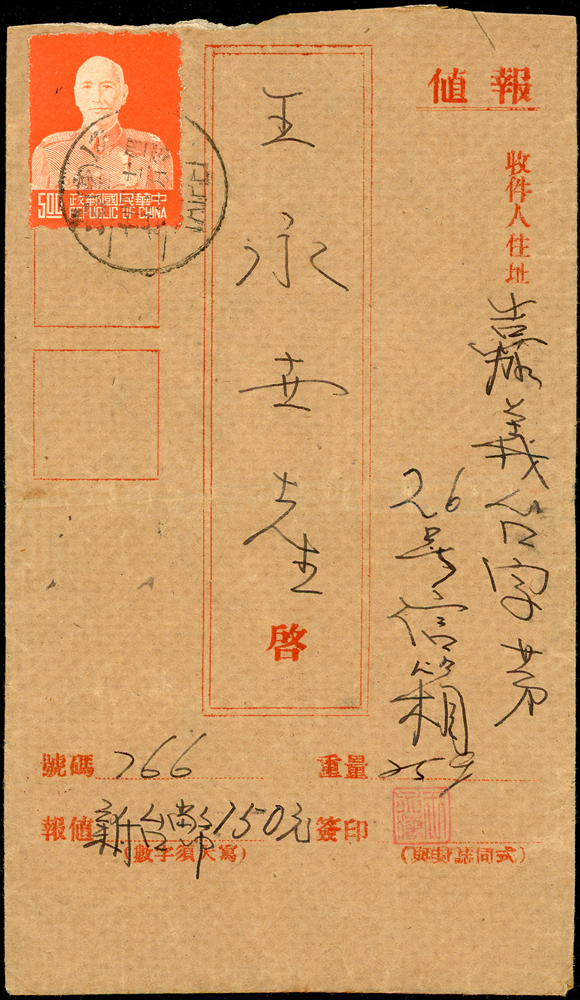 報值
收件人住址
嘉義台字第
26号信箱
王永世先生啓
中華民國郵政
5.00
REPUBLIC OF CHINA
號碼 766
重量 25
報值 新台幣150元
簽印
(數字須大寫)
(與封誌同式)